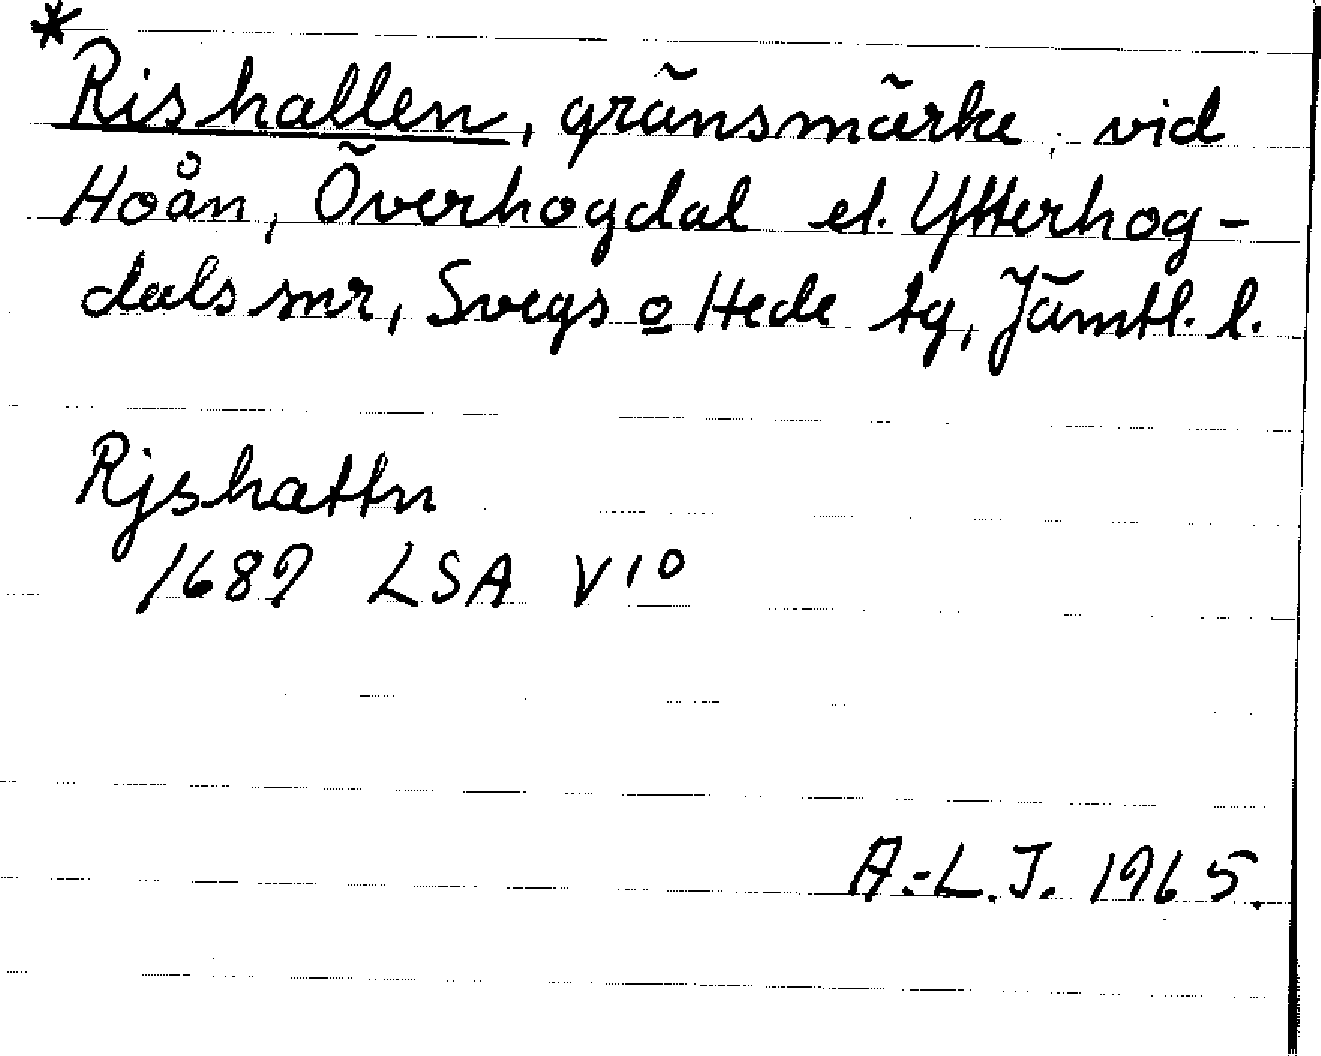 *
Rishallen, gränsmärke, vid
Hoån, Överhogdal el. Ytterhog-
dals snr, Svegs o Hede tg, Jämtl. l.
Rjshattn
1689 LSA V10
A.-L.J. 1965.